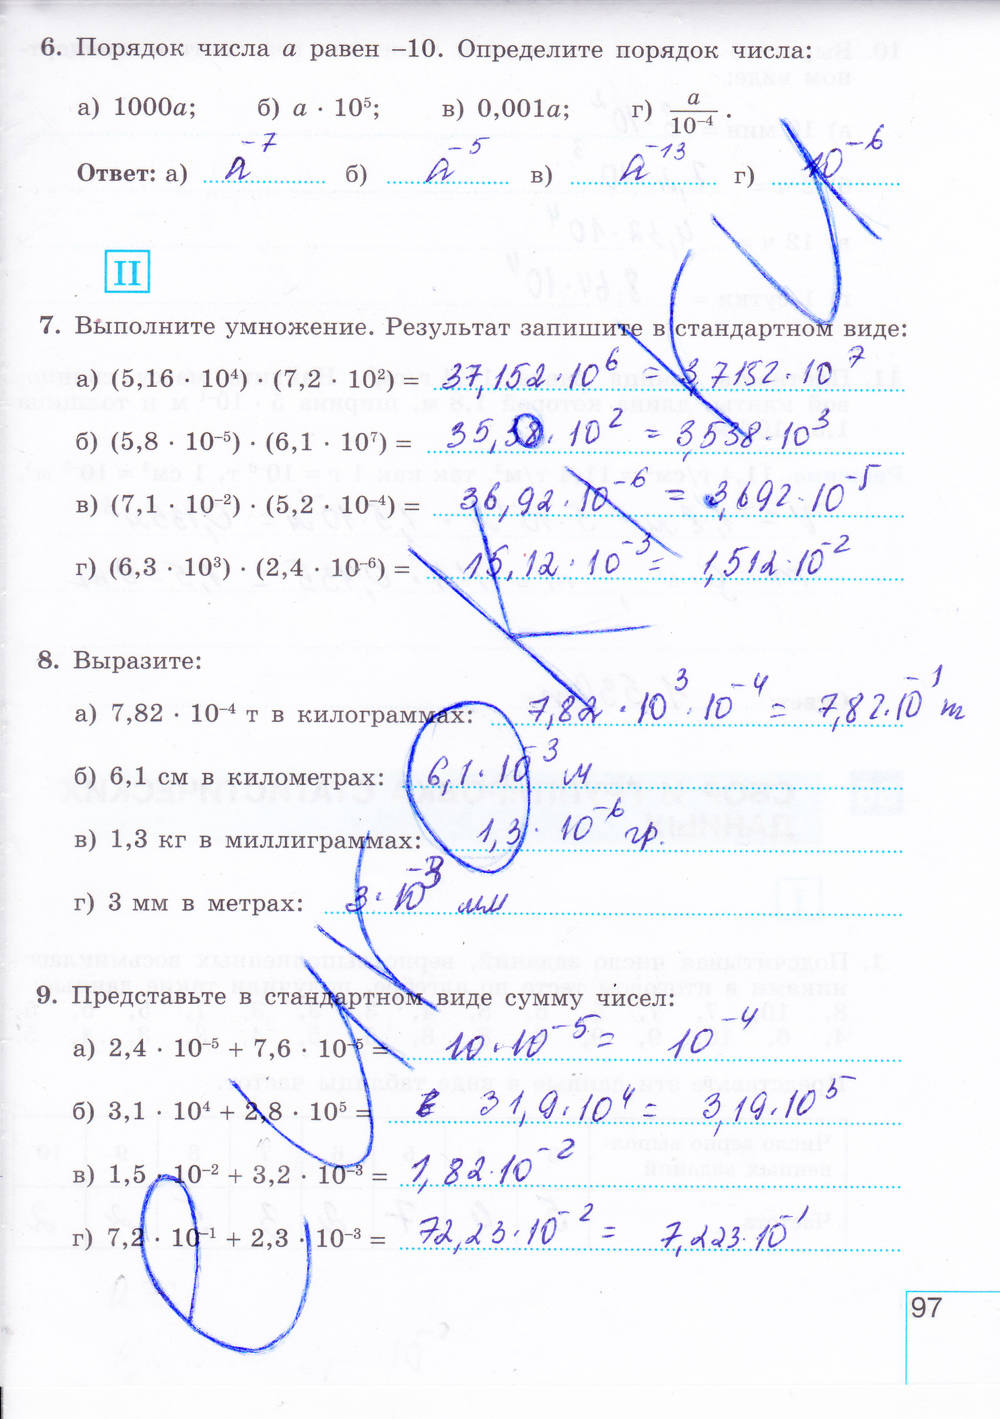 6. Порядок числа a равен –10. Определите порядок числа:
а) 1000a; б) a · 10⁵; в) 0,001a; г) a/10⁻⁴.
Ответ: а) a⁻⁷ б) a⁻⁵ в) a⁻¹³ г) 10⁻⁶
II
7. Выполните умножение. Результат запишите в стандартном виде:
а) (5,16 · 10⁴) · (7,2 · 10²) = 37,152·10⁶ = 3,7152·10⁷
б) (5,8 · 10⁻⁵) · (6,1 · 10⁷) = 35,38·10² = 3,538·10³
в) (7,1 · 10⁻²) · (5,2 · 10⁻⁴) = 36,92·10⁻⁶ = 3,692·10⁻⁵
г) (6,3 · 10³) · (2,4 · 10⁻⁶) = 15,12·10⁻³ = 1,512·10⁻²
8. Выразите:
а) 7,82 · 10⁻⁴ т в килограммах: 7,82·10³·10⁻⁴ = 7,82·10⁻¹ т
б) 6,1 см в километрах: 6,1·10⁻³ м
в) 1,3 кг в миллиграммах: 1,3·10⁻⁶ гр.
г) 3 мм в метрах: 3·10⁻³ мм
9. Представьте в стандартном виде сумму чисел:
а) 2,4 · 10⁻⁵ + 7,6 · 10⁻⁵ = 10·10⁻⁵ = 10⁻⁴
б) 3,1 · 10⁴ + 2,8 · 10⁵ = 31,9·10⁴ = 3,19·10⁵
в) 1,5 · 10⁻² + 3,2 · 10⁻³ = 1,82·10⁻²
г) 7,2 · 10⁻¹ + 2,3 · 10⁻³ = 72,23·10⁻² = 7,223·10⁻¹
97